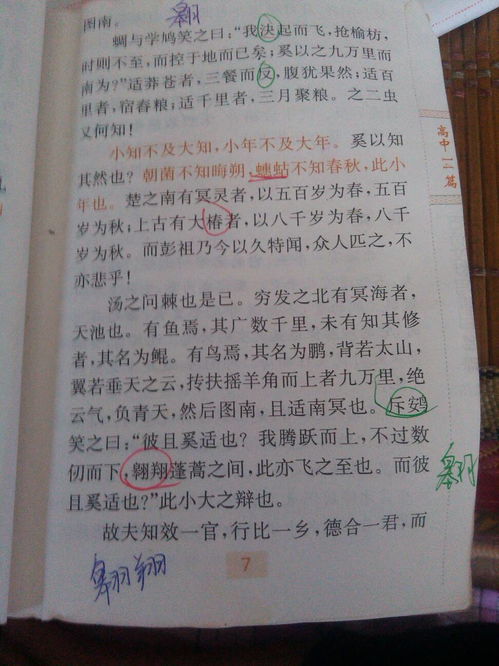 翱
图南。
蜩与学鸠笑之曰：“我决起而飞，抢榆枋，
时则不至，而控于地而已矣；奚以之九万里而
南为？”适莽苍者，三餐而反，腹犹果然；适百
里者，宿舂粮；适千里者，三月聚粮。之二虫
又何知！
小知不及大知，小年不及大年。奚以知
其然也？朝菌不知晦朔，蟪蛄不知春秋，此小
年也。楚之南有冥灵者，以五百岁为春，五百
岁为秋；上古有大椿者，以八千岁为春，八千
岁为秋。而彭祖乃今以久特闻，众人匹之，不
亦悲乎！
汤之问棘也是已。穷发之北有冥海者，
天池也。有鱼焉，其广数千里，未有知其修
者，其名为鲲。有鸟焉，其名为鹏，背若太山，
翼若垂天之云，抟扶摇羊角而上者九万里，绝
云气，负青天，然后图南，且适南冥也。斥鴳
笑之曰：“彼且奚适也？我腾跃而上，不过数
仞而下，翱翔蓬蒿之间，此亦飞之至也。而彼
且奚适也？”此小大之辩也。
故夫知效一官，行比一乡，德合一君，而
7
高中一二篇
翱
翱翔